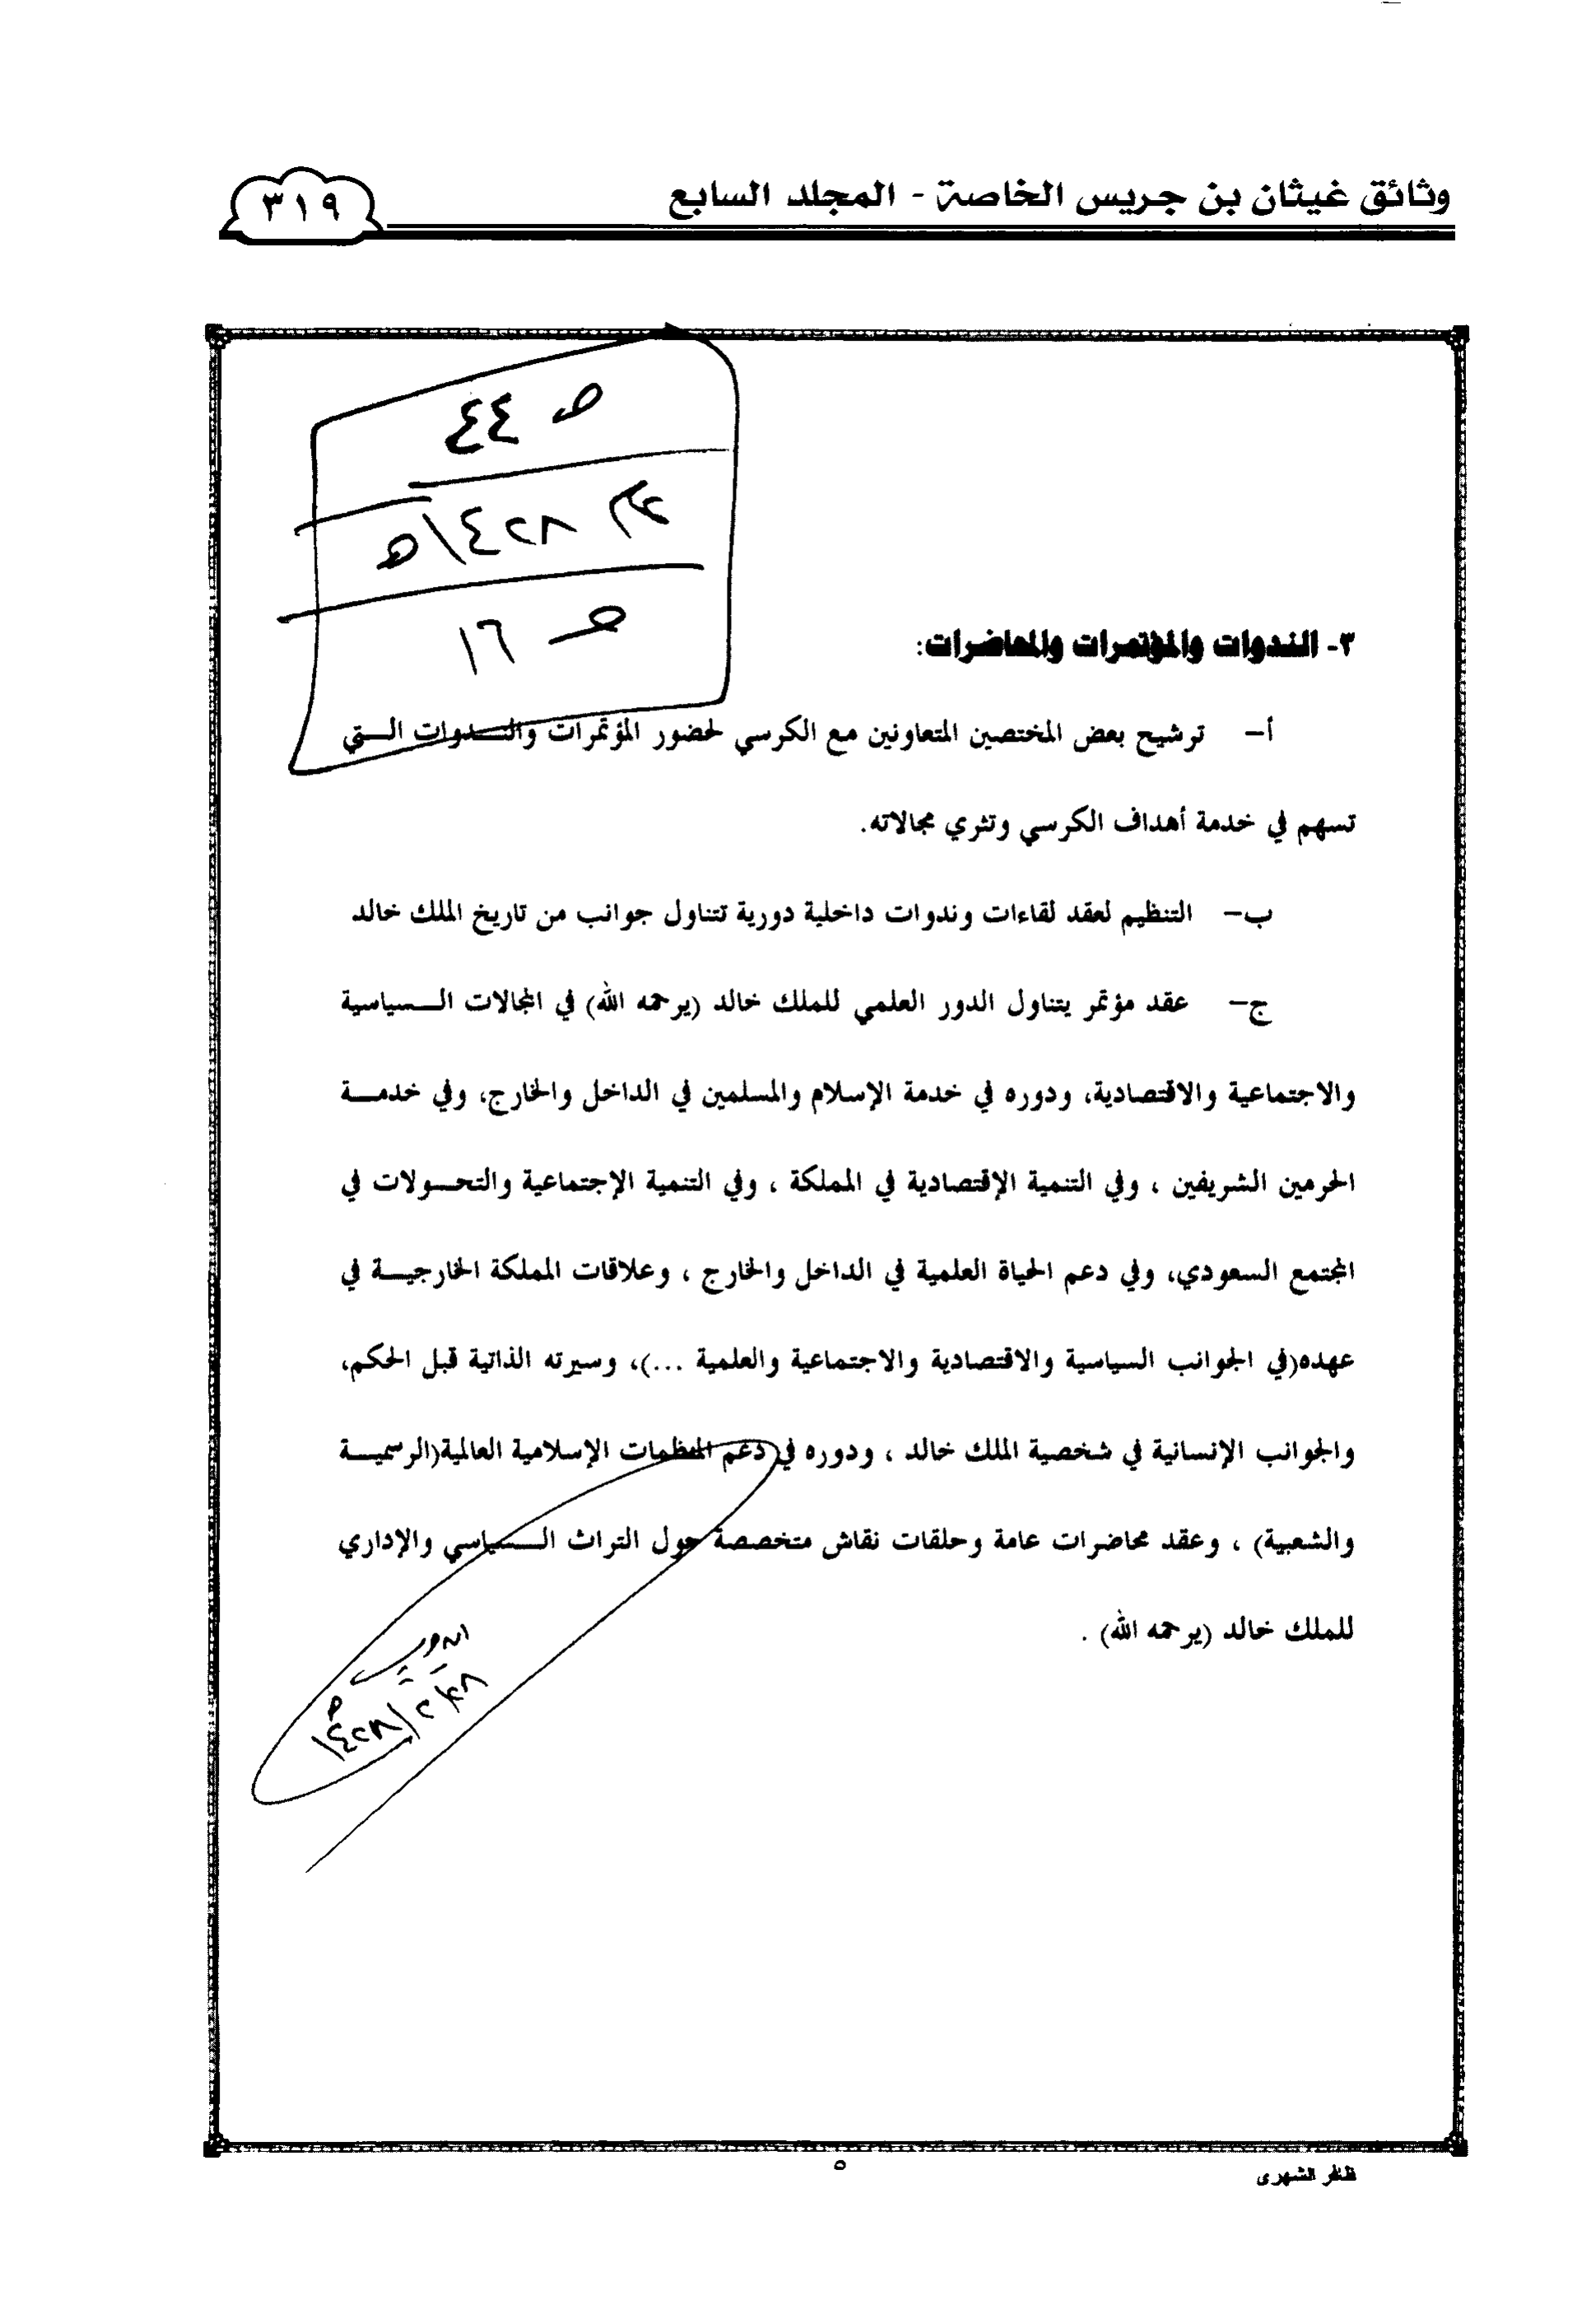 وثائق غيثان بن جريس الخاصة - المجلد السابع
٣١٩
ص ٤٤
١٤٢٨هـ
ص ١٦
٣- الندوات والمؤتمرات والمحاضرات:
أ- ترشيح بعض المختصين المتعاونين مع الكرسي لحضور المؤتمرات والنـدوات الـتي
تسهم في خدمة أهداف الكرسي وتثري مجالاته.
ب- التنظيم لعقد لقاءات وندوات داخلية دورية تتناول جوانب من تاريخ الملك خالد
ج- عقد مؤتمر يتناول الدور العلمي للملك خالد (يرحمه الله) في المجالات الـسياسية
والاجتماعية والاقتصادية، ودوره في خدمة الإسلام والمسلمين في الداخل والخارج، وفي خدمـة
الحرمين الشريفين ، وفي التنمية الإقتصادية في المملكة ، وفي التنمية الإجتماعية والتحـولات في
المجتمع السعودي، وفي دعم الحياة العلمية في الداخل والخارج ، وعلاقات المملكة الخارجيـة في
عهده(في الجوانب السياسية والاقتصادية والاجتماعية والعلمية ...)، وسيرته الذاتية قبل الحكم،
والجوانب الإنسانية في شخصية الملك خالد ، ودوره في دعم المنظمات الإسلامية العالمية(الرسميـة
والشعبية) ، وعقد محاضرات عامة وحلقات نقاش متخصصة حول التراث الـسياسي والإداري
للملك خالد (يرحمه الله) .
٥
ظافر الشهرى